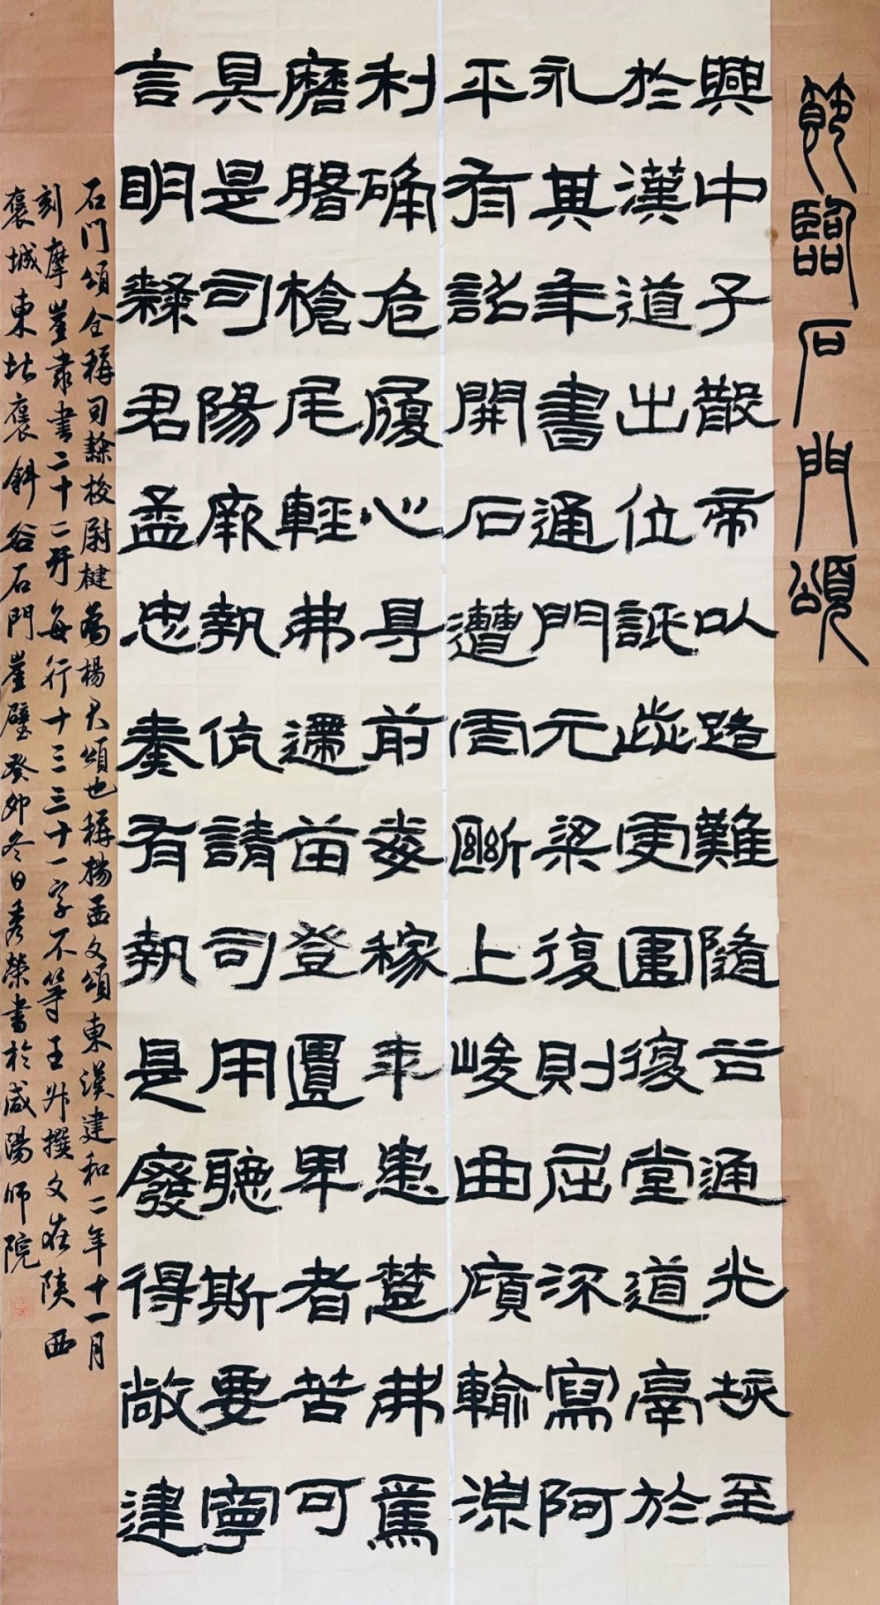 節臨石門頌
興中子散帝以路難隨谷通光垓至
於漢道出位詆歰更圍復堂道鬲於
永其年書通門元梁復則屈流寫阿
平有詔開石遭西斷上峻曲顛輸湶
利确危履心㝵前毒稼年患楚弗焉
磨槍尾輕弗遰苗登匱卑者苦可
具是司陽厥執伉請司用聽斯要寧
言明隸君孟忠奏有執是廢得敞建
石门頌全稱司隸校尉楗為楊君頌也稱楊孟文頌東漢建和二年十一月
刻摩崖隸書二十二行每行十三三十一字不等王升撰文在陝西
褒城東北褒斜谷石門崖壁癸卯冬日彥榮書於咸陽師院